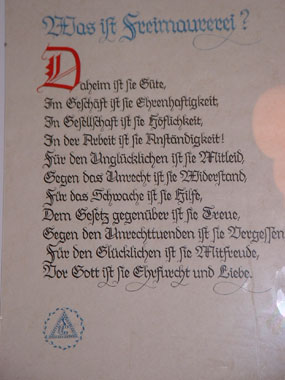 Was ist Freimaurerei?
Daheim ist sie Güte,
Im Geschäft ist sie Ehrenhaftigkeit,
In Gesellschaft ist sie Höflichkeit,
In der Arbeit ist sie Anständigkeit!
Für den Unglücklichen ist sie Mitleid,
Gegen das Unrecht ist sie Widerstand,
Für das Schwache ist sie Hilfe,
Dem Gesetz gegenüber ist sie Treue,
Gegen den Unrechttuenden ist sie Vergessen
Für den Glücklichen ist sie Mitfreude,
Vor Gott ist sie Ehrfurcht und Liebe.